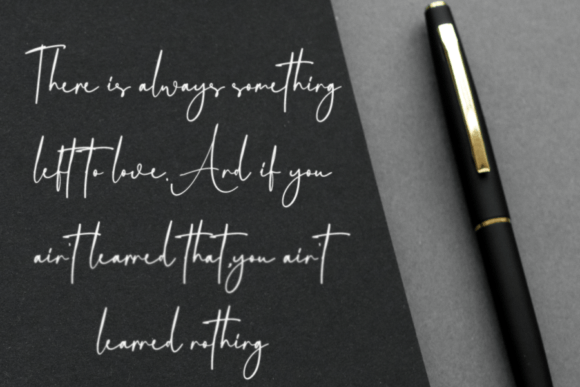 There is always something
left to love. And if you
ain't learned that,you ain't
learned nothing